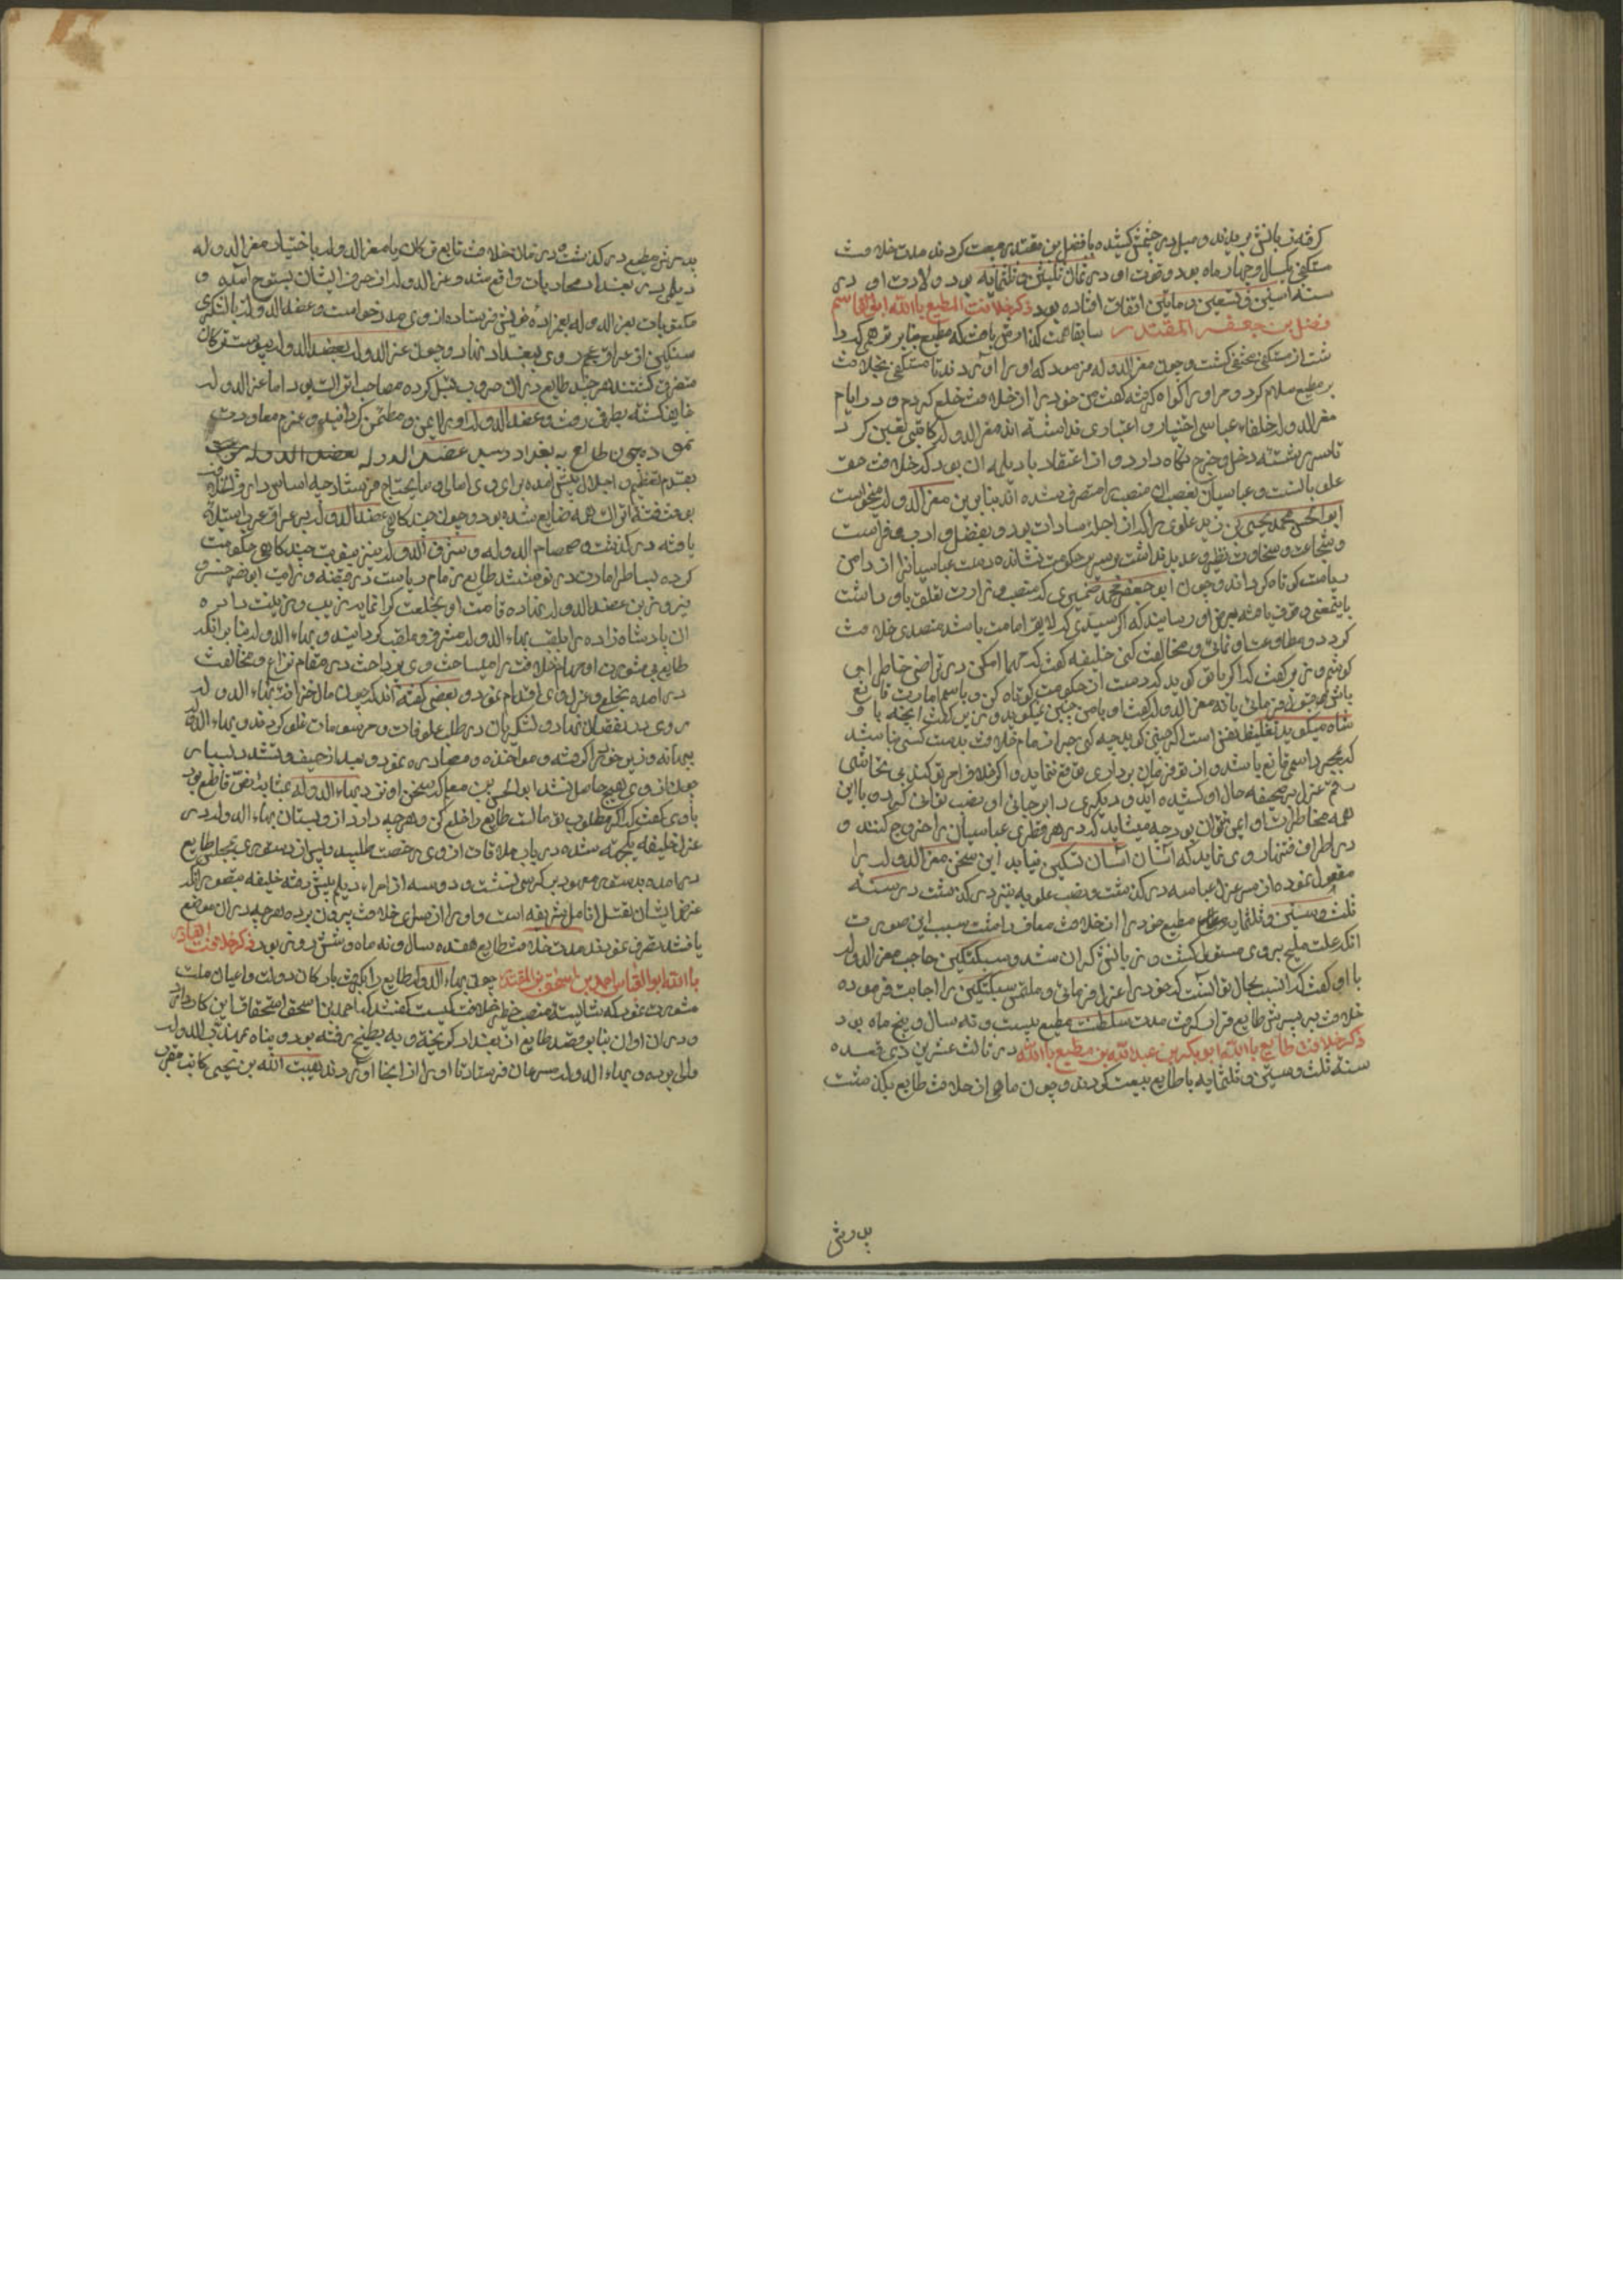 گرفته زبانش بریدند و میل در چشمش کشیده با فضل بن مقتدر بیعت کردند مدت خلافت
مستکفی یکسال و چهار ماه بود و فوت او در ثمان ثلثین و ثلثمایه بود و ولادت او در
سنه اثنین و تسعین و مایتین اتفاق افتاده بود ذکر خلافت المطیع باالله ابوالقاسم
فضل بن جعفر المقتدر سابقا
مستکفی مختفی گشت و چون معزالدوله فرمود که او را آوردند تا مستکفی بخلافت
بر مطیع سلام کرد و مر او را گواه گرفته گفت من خود را از خلافت خلع کردم و در ایام
معزالدوله خلفاء عباسی اختیار و اعتباری نداشته اند معزالدوله کاتبی تعیین کرد
تا سر رشته دخل و خرج نگاه دارد و از اعتقاد بادیلمه آن بود که خلافت حق
علویانست و عباسیان بغصب آن منصب را متصرف شده اند بنابرین معزالدوله میخواست
ابوالحسن محمد یحیی بن زید علوی را که از اجله سادات بود و بفضل و ادب و فراست
و شجاعت و سخاوت نظیر و عدیل نداشت بر سریر حکومت نشانده دست عباسیانرا از دامن
ریاست کوتاه گرداند و چون ابوجعفر محمد ضمیری که منصب وزارت تعلق باو داشت
باینمعنی وقوف یافته بعرض او رسانید که اگر سیدی که لایق امامت باشد متصدی خلافت
گردد و مطاوعت او نمائی و مخالفت کنی خلیفه گفت که مهما امکن در تراضی خاطر او می
کوشم وزیر گفت که اگر با تو گوید که دست از حکومت کوتاه کن و باسم امارت قانع
باش قبول فرمائی یا نه معزالدوله گفت او با من چنین نمیگوید وزیر گفت آنچه با
شاه میگوید
که بمجرد اسمی قانع باشد و از تو فرمان برداری توقع ننماید و اگر خلاف امر تو کند بی تحاشی
رقم عزل بر صحیفه حال او کشیده آید و دیگری را بر جای او نصب توان کرد و با این
همه مخاطرات او ایمن نتوان بود چه میشاید که در هر قطری عباسیان را خروج کنند و
در اطراف فتنها روی نماید که آسان آسان تسکین نیابد این سخن معزالدوله را
معقول نموده از سر عزل عباسیه درگذشت و نصب علویه نیز درگذشت در سنه
ثلث و ستین و ثلثمایه مطیع خود را از خلافت معاف داشت سبب این صورت
آنکه علت فلج بر وی مستولی گشت و زبانش گران شد و سبکتکین حاجب معزالدوله
با او گفت که انسب بحال تو آنست که خود را عزل فرمائی و ملتمس سبکتکین را اجابت فرموده
خلافت بر پسرش طایع قرار گرفت مدت سلطنت مطیع بیست و نه سال و پنج ماه بود
ذکر خلافت طایع باالله ابوبکر بن عبدالله بن مطیع باالله در ثالث عشرین ذی قعده
سنه ثلث و ستین و ثلثمایه با طایع بیعت کردند و چون ماهی از خلافت طایع بگذشت
پدرش
پدرش مطیع درگذشت در زمان خلافت طایع ترکان را با معزالدوله بختیار بن معزالدوله
دیلمی در بغداد محاربات واقع شد و عزالدوله از حرف ایشان بستوه آمده و
مکتوبات بعزالدوله
سنگین از عراق عجم روی ببغداد نهاد و چون عزالدوله بعضدالدوله پیوست ترکان
متفرق گشتند هر چند طایع در آن حروب قبل کرده مصاحب اتراک بود اما عزالدوله
خایف گشته بطرفی رفت و عضدالدوله او را ایمن و مطمئن گردانید و عزم معاودت
نموده چون طایع به بغداد رسید عضدالدوله
بقدم تعظیم و اجلال پیش آمده برای وی امانی و مایحتاج فرستاد چه اساس دارالخلافه
بوقت فتنه اتراک همه ضایع شده بود و چون چندگاهی عضدالدوله بر عراق عرب استیلا
یافته درگذشت و صمصام الدوله و شرف الدوله نیز بنوبت چندگاهی حکومت
کرده بساط امارت درنوشتند طایع زمام ریاست در قبضه درایت ابونصر خسرو
فیروز بن عضدالدوله نهاده قامت او بخلعت گرانمایه زیب و زینت داد و
آن پادشاه زاده را بلقب بهاء الدوله مشرف و ملقب گردانید و بهاء الدوله بنابر آنکه
طایع بی مشورت او مهام خلافت را میساخت وی پرداخت در مقام نزاع و مخالفت
درآمده بخلع و عزل وی اقدام نمود و بعضی گفته اند که چون مال خزانه بهاء الدوله
روی بنقصان نهاد و لشکریان در طلب علوفات و مرسومات غلو کردند و بهاء الدوله
بیبهانه وزیر خود را گرفته و مواخذه و مصادره نمود و بعد از حیف و تشدد بسیار
چون از وی هیچ حاصل نشد ابوالحسن بن معلم که سخن او نزد بهاء الدوله بمثابه نص قاطع بود
با وی گفت که اگر مطلوب تو مالست طایع را خلع کن و هر چه دارد ازو بستان بهاء الدوله در
عزل خلیفه یکجهت شده در باب ملاقات از وی رخصت طلبید و پس از دستوری بمجلس طایع
درآمده بدستور معهود بر کرسی نشست و دو سه از امراء دیلم پیش رفته خلیفه تصور آنکه
غرض ایشان تقبیل انامل شریفه است و او را از سرای خلافت بیرون برده هر چه در آن موضع
یافتند تصرف نمودند مدت خلافت طایع هفده سال و نه ماه و شش روز بود ذکر خلافت القادر
باالله ابوالقاسم احمد بن اسحق بن المقتدر چون بهاء الدوله طایع را بگرفت با ارکان دولت و اعیان ملت
مشورت نمود که شایسته منصب خطیر خلافت کیست گفتند که احمد بن اسحق استحقاق این کار دارد
و در آن اوان بنابر قصد طایع از بغداد گریخته و به بطیح رفته بود و پناه بمهذب الدوله
والی برده و بهاء الدوله مسرعان فرستاد تا او را از آنجا آوردند هیبت الله بن یحیی کاتب